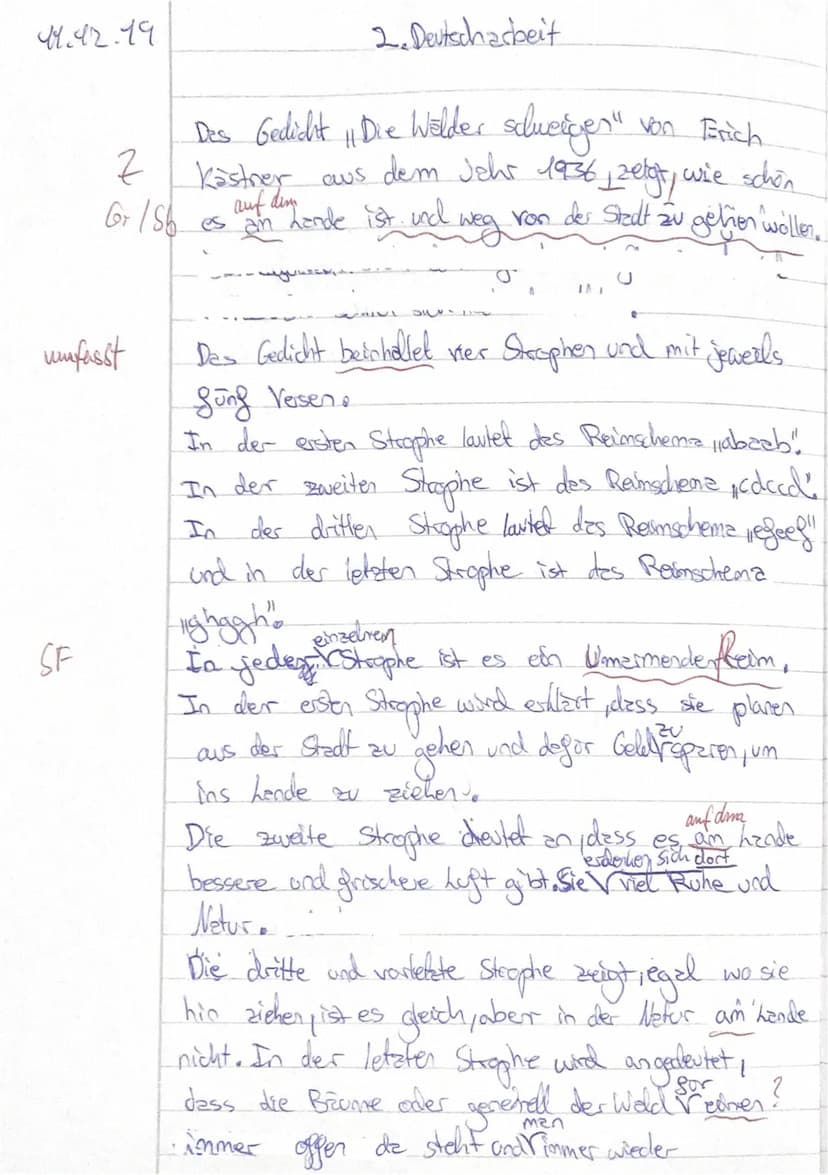 11.12.19 2. Deutscharbeit
Das Gedicht „Die Wälder schweigen" von Erich
Z Kästner aus dem Jahr 1936, zeigt, wie schön
auf dem
Gr/Sb es am Lande ist und weg von der Stadt zu gehen wollen.
umfasst Das Gedicht beinhaltet vier Strophen und mit jeweils
fünf Versen.
In der ersten Strophe lautet das Reimschema „abaab".
In der zweiten Strophe ist das Reimschema „cdccd".
In der dritten Strophe lautet das Reimschema „efeef"
und in der letzten Strophe ist das Reimschema
„ghggh".
einzelnen
SF In jeder Strophe ist es ein Umarmender Reim.
In der ersten Strophe wird erklärt, dass sie planen
zu
aus der Stadt zu gehen und dafür Geld sparen, um
ins Lande zu ziehen.
auf dem
Die zweite Strophe deutet an, dass es am Lande
sich dort
bessere und frischere Luft gibt. Sie viel Ruhe und
Natur.
Die dritte und vorletzte Strophe zeigt, egal wo sie
hin ziehen, ist es gleich, aber in der Natur am Lande
nicht. In der letzten Strophe wird angedeutet,
für
dass die Bäume oder generell der Wald einen ?
man
immer offen da steht und immer wieder